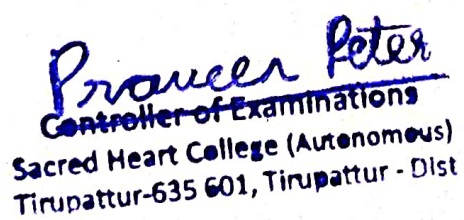 Peter
Controller of Examinations
Sacred Heart College (Autonomous)
Tirupattur-635 601, Tirupattur - Dist